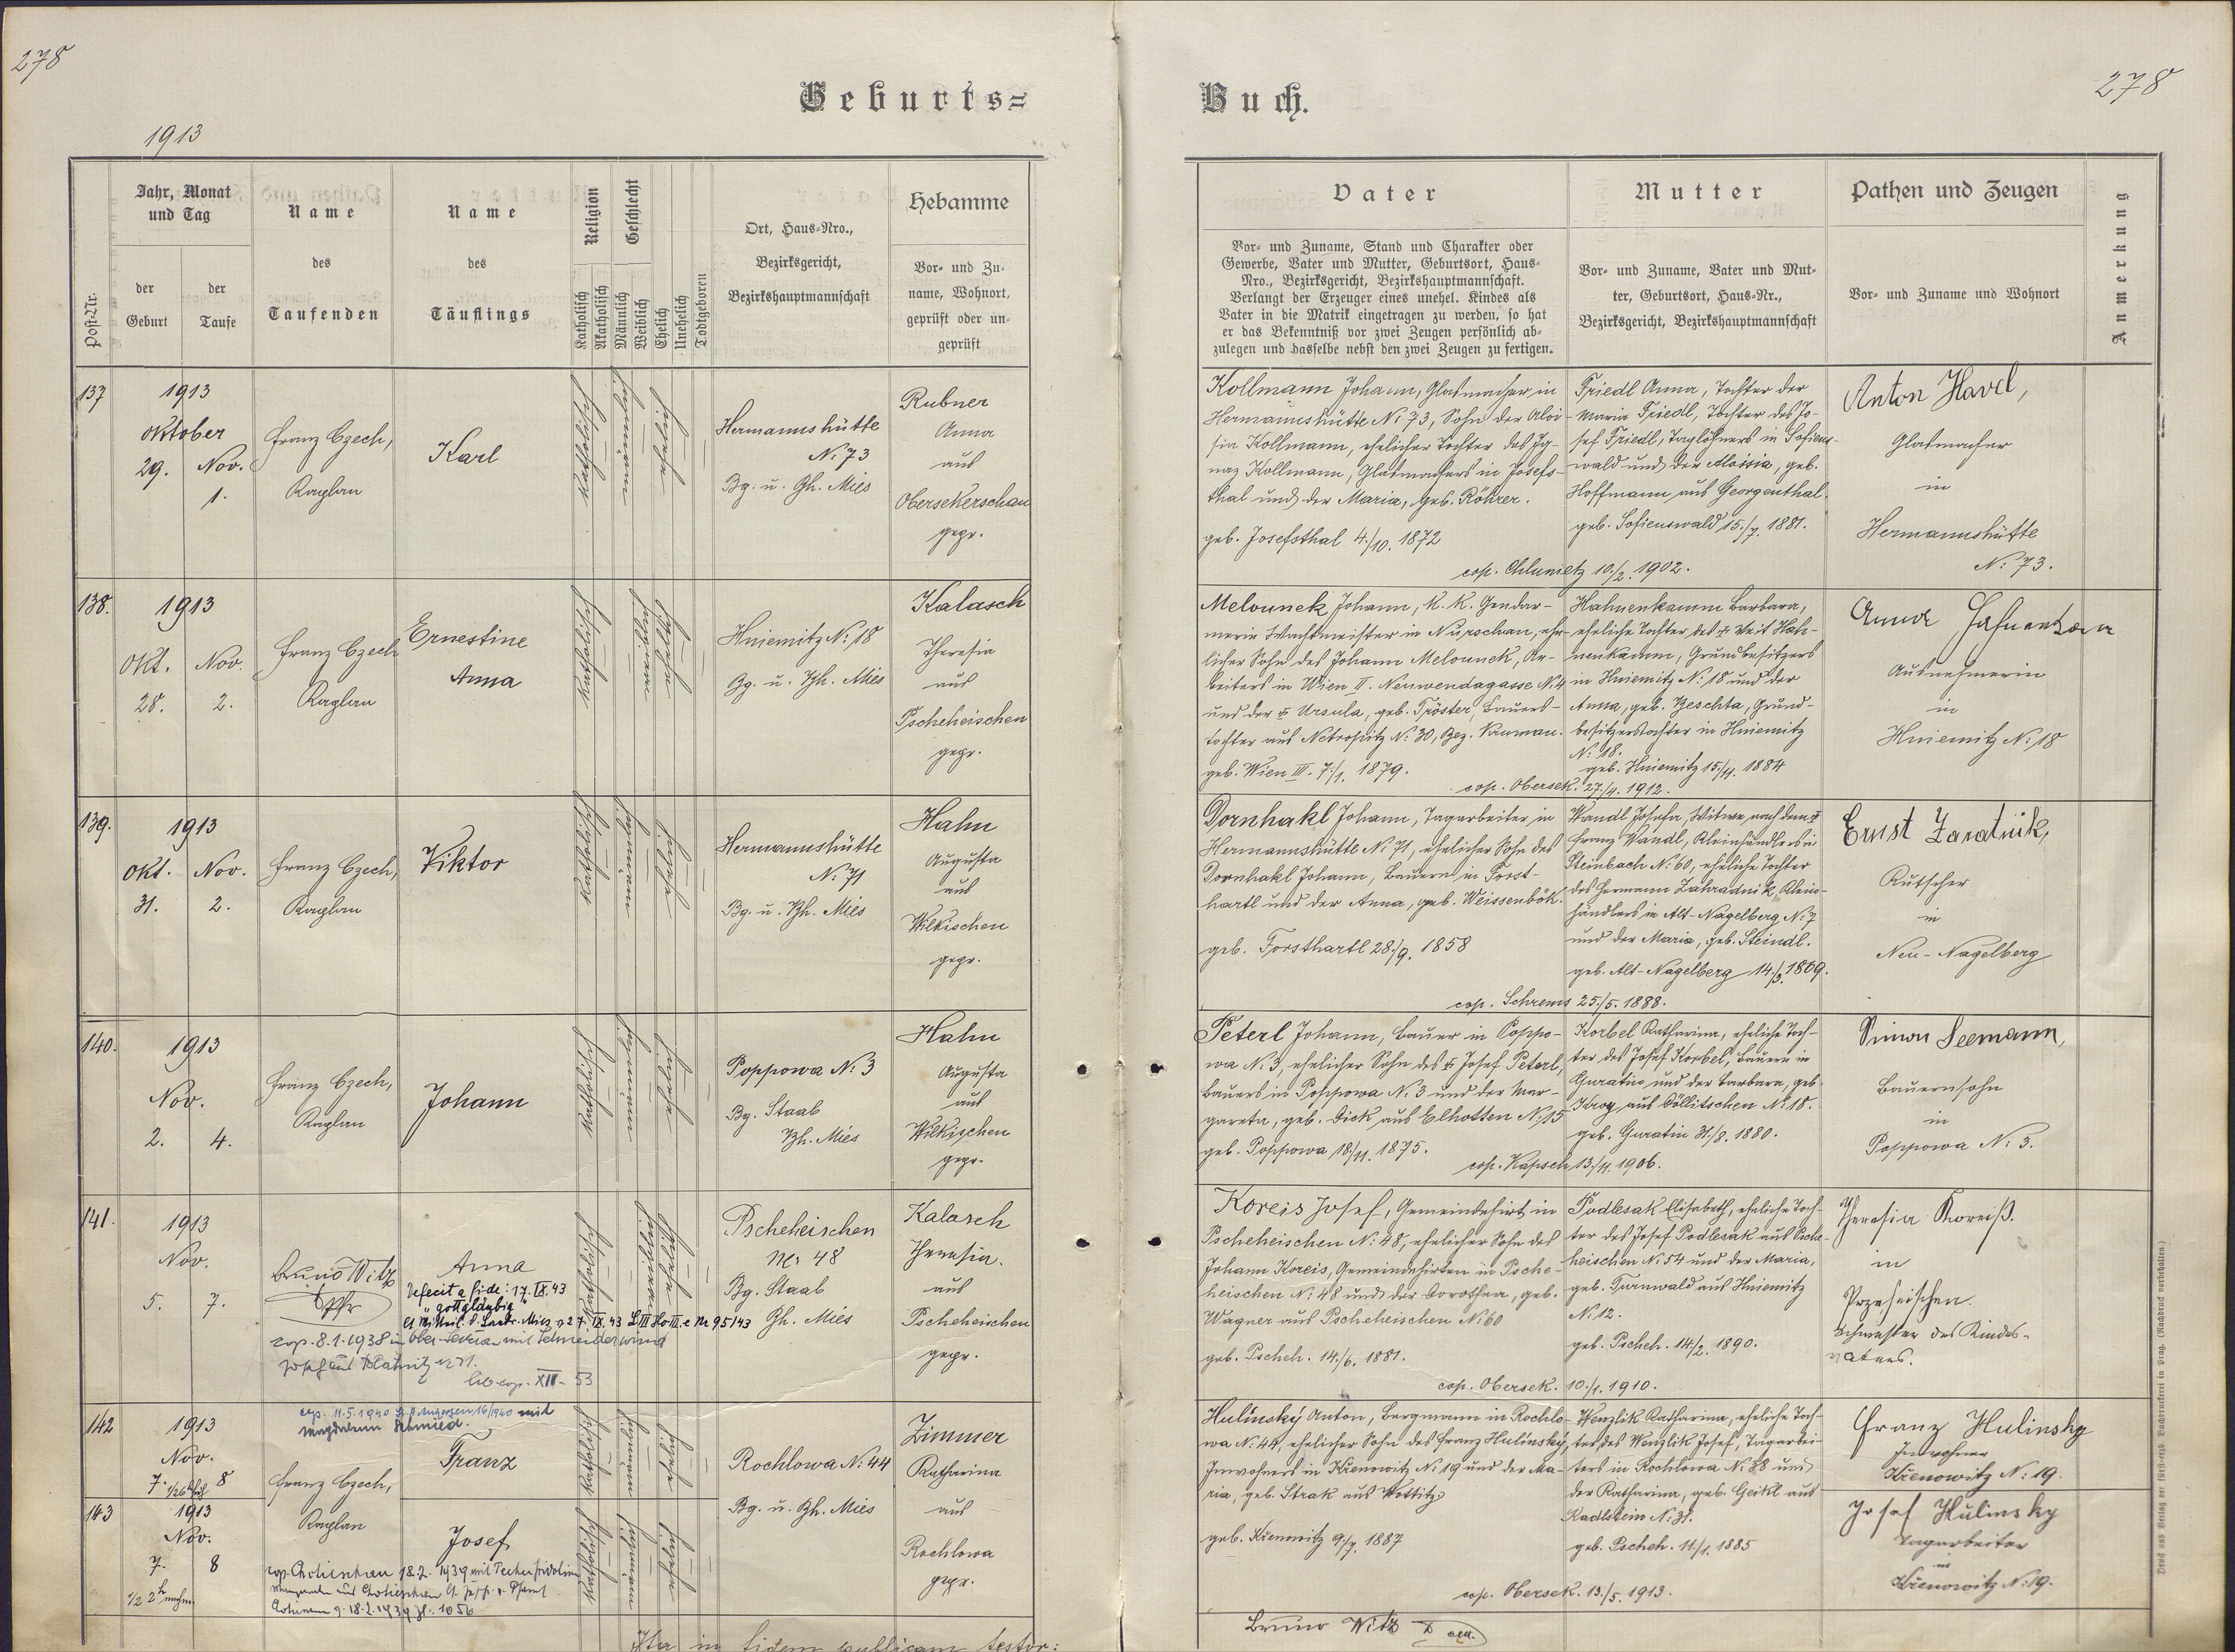 278
278
Geburts=
Buch.
1913
Post-Nr.
Jahr, Monat
und Tag
der
Geburt
der
Taufe
Name
des
Taufenden
Name
des
Täuflings
Religion
Katholisch
Akatholisch
Geschlecht
Männlich
Weiblich
Ehelich
Unehelich
Todtgeboren
Ort, Haus-Nro.,
Bezirksgericht,
Bezirkshauptmannschaft
Hebamme
Vor- und Zu-
name, Wohnort,
geprüft oder un-
geprüft
Vater
Vor- und Zuname, Stand und Charakter oder
Gewerbe, Vater und Mutter, Geburtsort, Haus-
Nro., Bezirksgericht, Bezirkshauptmannschaft.
Verlangt der Erzeuger eines unehel. Kindes als
Vater in die Matrik eingetragen zu werden, so hat
er das Bekenntniß vor zwei Zeugen persönlich ab-
zulegen und dasselbe nebst den zwei Zeugen zu fertigen.
Mutter
Vor- und Zuname, Vater und Mut-
ter, Geburtsort, Haus-Nr.,
Bezirksgericht, Bezirkshauptmannschaft
Pathen und Zeugen
Vor- und Zuname und Wohnort
Anmerkung
137
1913
Oktober
29. Nov.
1.
Franz Czech,
Kaplan
Karl
Katholisch
Männlich
Ehelich
Hermannshütte
N: 73
Bg. u. Bh. Mies
Rubner
Anna
aus
Obersekerschan
gepr.
Kollmann Johann, Glasmacher in
Hermannshütte N: 73, Sohn der Aloi-
sia Kollmann, ehelicher Tochter des Ig-
naz Kollmann, Glasmachers in Josefs-
thal und der Maria, geb. Röhrer.
geb. Josefsthal 4./10. 1872
Friedl Anna, Tochter der
Maria Friedl, Tochter des Jo-
sef Friedl, Taglöhners in Sofien-
wald und der Aloisia, geb.
Hoffmann aus Georgenthal.
geb. Sofienswald 15./7. 1881.
cop. Chlumetz 10./2. 1902.
Anton Havel,
Glasmacher
in
Hermannshütte
N: 73.
138.
1913
Okt. Nov.
28. 2.
Franz Czech
Kaplan
Ernestine
Anna
Katholisch
Weiblich
Ehelich
Hniemitz N: 18
Bg. u. Bh. Mies
Kalasch
Theresia
aus
Pscheheischen
gepr.
Melounek Johann, K. K. Gendar-
merie Wachtmeister in Nürschan, ehe-
licher Sohn des Johann Melounek, Ar-
beiters in Wien II. N: 4
und der † Ursula, geb. Tröster, Bauers-
tochter aus Netropitz N: 30, Bez. Krumau.
geb. Wien III. 7./1. 1879.
Hahnenkamm Barbara,
eheliche Tochter des † Veit Hah-
nenkamm, Grundbesitzers
in Hniemitz N: 18 und der
Anna, geb. Beschta, Grund-
besitzerstochter in Hniemitz
N: 18.
geb. Hniemitz 15./11. 1884
cop. Obersek. 27./4. 1912.
Anna Hahnenkamm
Ausnehmerin
in
Hniemitz N: 18
139.
1913
Okt. Nov.
31. 2.
Franz Czech,
Kaplan
Viktor
Katholisch
Männlich
Ehelich
Hermannshütte
N: 71
Bg. u. Bh. Mies
Hahn
Augusta
aus
Wilkischen
gepr.
Dornhakl Johann, Tagarbeiter in
Hermannshütte N: 71, ehelicher Sohn des
Dornhakl Johann, Bauern in Forst-
hartl und der Anna, geb. Weissenböh.
geb. Forsthartl 28./9. 1858
Wandl Josefa, Witwe nach dem †
Franz Wandl, Kleinhändlers in
Steinbach N: 60, eheliche Tochter
des Hermann Zahradnik, Klein-
händlers in Alt-Nagelberg N: 7
und der Maria, geb. Steindl.
geb. Alt-Nagelberg 14./3. 1869.
cop. Schrems 25./5. 1888.
Ernst Zaratnik,
Kutscher
in
Neu-Nagelberg
140.
1913
Nov.
2. 4.
Franz Czech,
Kaplan
Johann
Katholisch
Männlich
Ehelich
Poppowa N: 3
Bg. Staab
Bh. Mies
Hahn
Augusta
aus
Wilkischen
gepr.
Peterl Johann, Bauer in Poppo-
wa N: 3, ehelicher Sohn des † Josef Peterl,
Bauers in Poppowa N: 3 und der Mar-
gareta, geb. Dick aus Elhotten N: 15
geb. Poppowa 18./11. 1875.
Korbel Katharina, eheliche Toch-
ter des Josef Korbel, Bauern in
Guratin und der Barbara, geb.
aus Göllitschen N: 18.
geb. Guratin 31./8. 1880.
cop. Kapsch 13./11. 1906.
Simon Seemann,
Bauernsohn
in
Poppowa N: 3.
141.
1913
Nov.
5. 7.
Bruno Witz
Pfr
Anna
Defecit a fide: 17. IX. 43
"gottgläubig"
Mies 27. IX. 43 Nr 95/43
cop. 8.1.1938 in Ober-Sekeran mit Schneiderwind
Josef aus Blatnitz n. 71.
lib. cop. XII - 53
Katholisch
Weiblich
Ehelich
Pscheheischen
Nr: 48
Bg. Staab
Bh. Mies
Kalasch
Theresia.
aus
Pscheheischen
gepr.
Koreis Josef, Gemeindehirt in
Pscheheischen N: 48, ehelicher Sohn des
Johann Koreis, Gemeindehirten in Psche-
heischen N: 48 und der Dorothea, geb.
Wagner aus Pscheheischen N: 60
geb. Pscheh. 14./6. 1881.
Podlesak Elisabeth, eheliche Toch-
ter des Josef Podlesak aus Psche-
heischen N: 54 und der Maria,
geb. Turnwald aus Hniemitz
N: 12.
geb. Pscheh. 14./2. 1890.
cop. Obersek. 10./1. 1910.
Theresia Koreiß.
in
Przeheischen.
Schwester des Kindes-
vaters.
142
1913
Nov.
7. 1/2 6h früh 8
cop. 11.5.1940 16/1940 mit
Magdalena Schmied.
Franz Czech,
Kaplan
Franz
Katholisch
Männlich
Ehelich
Rochlowa N: 44
Bg. u. Bh. Mies
Zimmer
Katharina
aus
Rochlowa
gepr.
Hulínský Anton, Bergmann in Rochlo-
wa N: 44, ehelicher Sohn des Franz Hulínský,
Inwohners in Křenowitz N: 19 und der Ma-
ria, geb. Strak aus Wottitz
geb. Křenowitz 9./7. 1887
Wenzlik Katharina, eheliche Toch-
ter des Wenzlik Josef, Tagarbei-
ters in Rochlowa N: 38 und
der Katharina, geb. Geikl aus
Radlstein N: 31.
geb. Pscheh. 11./1. 1885
cop. Obersek. 13./5. 1913.
Franz Hulinsky
Inwohner
Křenowitz N: 19.
143
1913
Nov.
7. 8
1/2 2h nachm.
Josef
cop. Chotieschau 18.2. 1939 mit
aus Chotieschau
18.2.1939 1056
Katholisch
Männlich
Ehelich
Josef Hulinsky
Tagarbeiter
in
Křenowitz N: 19.
Ita in fidem publicam testor:
Bruno Witz
Druck und Verlag der fürst-erzb. Buchdruckerei in Prag. (Nachdruck vorbehalten.)